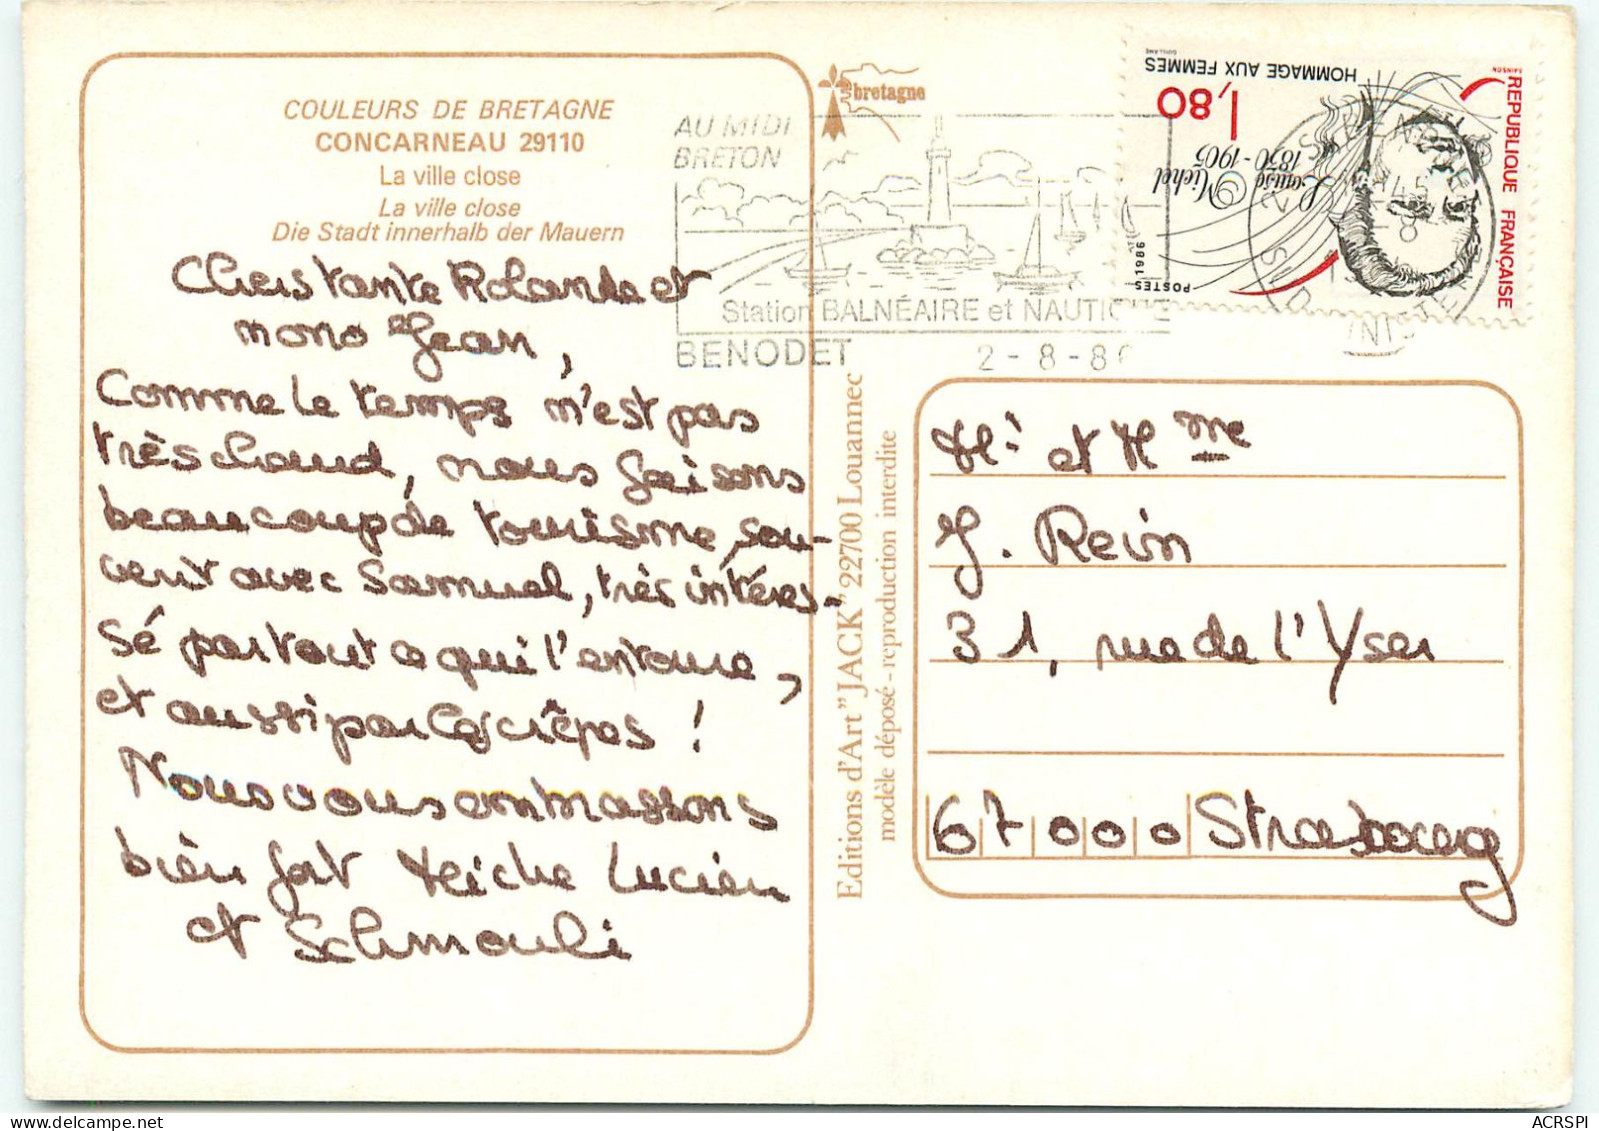 COULEURS DE BRETAGNE
CONCARNEAU 29110
La ville close
La ville close
Die Stadt innerhalb der Mauern
Chers tante Rolande et
nono Jean,
Comme le temps n'est pas
très chaud, nous faisons
beaucoup de tourisme, sou-
vent avec Samuel, très intéres-
sé partout ce qui l'entoure,
et aussi par les crêpes !
Nous vous embrassons
bien fort Lucien
et Schmouli
bretagne
AU MIDI
BRETON
Station BALNÉAIRE et NAUTIQUE
BENODET 2-8-86
REPUBLIQUE FRANÇAISE
HOMMAGE AUX FEMMES
1,80
Louise Michel
1830-1905
POSTES 1986
Editions d'Art "JACK" 22700 Louannec
modèle déposé - reproduction interdite
Mr et Mme
J. Rein
31, rue de l'Yser
67000 Strasbourg
ACRSPI